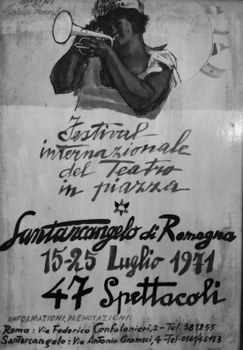 Festival
internazionale
del Teatro
in piazza
Santarcangelo di Romagna
15-25 Luglio 1971
47 Spettacoli
INFORMAZIONI, PRENOTAZIONI:
Roma: Via Federico Confalonieri, 2 - Tel. 381255
Santarcangelo: Via Antonio Gramsci, 4 - Tel.